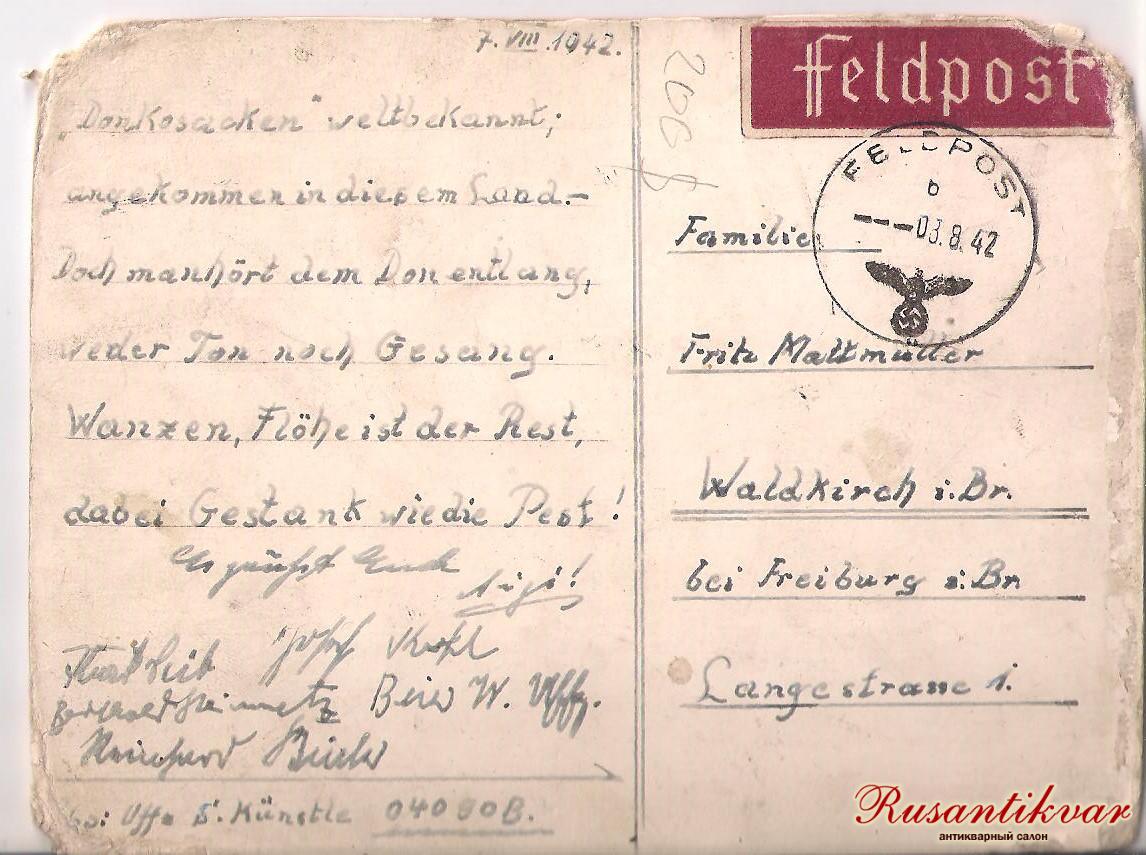 7. VIII. 1942.
„Donkosacken" weltbekannt;
angekommen in diesem Land.-
Doch man hört dem Don entlang,
weder Ton noch Gesang.
Wanzen, Flöhe ist der Rest,
dabei Gestank wie die Pest!
Es grüßt Euch
Josef
Beier W. Uffz.
Künstle 04090B.
Feldpost
FELDPOST
b
---03.8.42
Familie
Fritz Maltmüller
Waldkirch i. Br.
bei Freiburg i. Br
Langestrasse 1.
Rusantikvar
антикварный салон